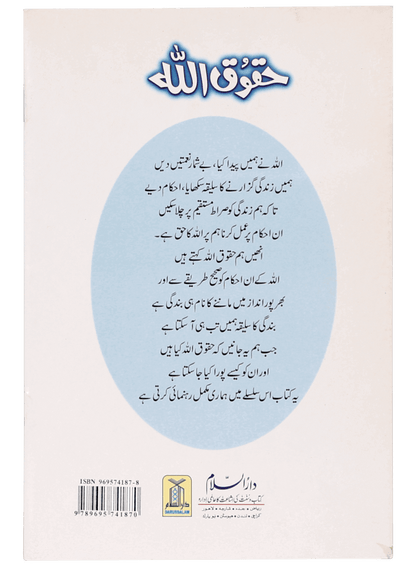 حقوق اللہ
اللہ نے ہمیں پیدا کیا، بے شمار نعمتیں دیں
ہمیں زندگی گزارنے کا سلیقہ سکھایا، احکام دیے
تاکہ ہم زندگی کو صراط مستقیم پر چلا سکیں
ان احکام پر عمل کرنا ہم پر اللہ کا حق ہے۔
انھیں ہم حقوق اللہ کہتے ہیں
اللہ کے ان احکام کو صحیح طریقے سے اور
بھرپور انداز میں ماننے کا نام ہی بندگی ہے
بندگی کا سلیقہ ہمیں تب ہی آ سکتا ہے
جب ہم یہ جانیں کہ حقوق اللہ کیا ہیں
اور ان کو کیسے پورا کیا جا سکتا ہے
یہ کتاب اس سلسلے میں ہماری مکمل رہنمائی کرتی ہے
دارالسلام
کتاب و سنت کی اشاعت کا عالمی ادارہ
ریاض جدہ شارجہ لاہور
کراچی لندن ہیوسٹن نیویارک
دارالسلام
DARUSSALAM
ISBN 969574187-8
9 789695 741870